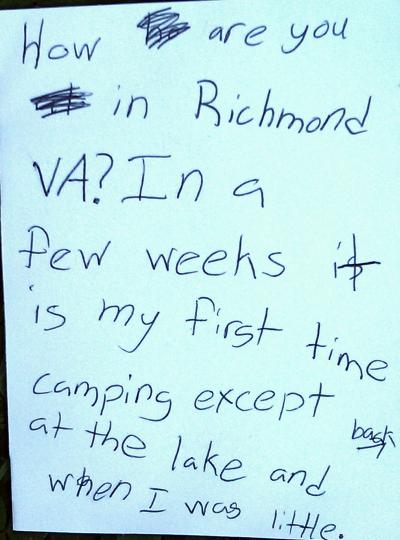 How are you
in Richmond
VA? In a
few weeks it
is my first time
camping except back
at the lake and
when I was little.